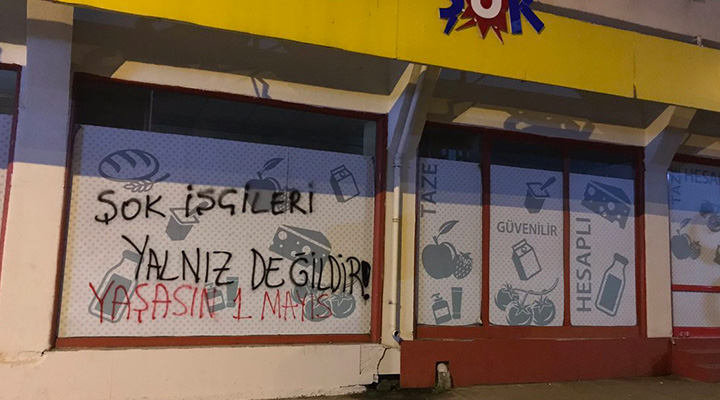 ŞOK
ŞOK İŞGİLERİ
YALNIZ DEĞİLDİR!
YAŞASIN 1 MAYIS
TAZE
GÜVENİLİR
HESAPLI
TAZ
HESAP